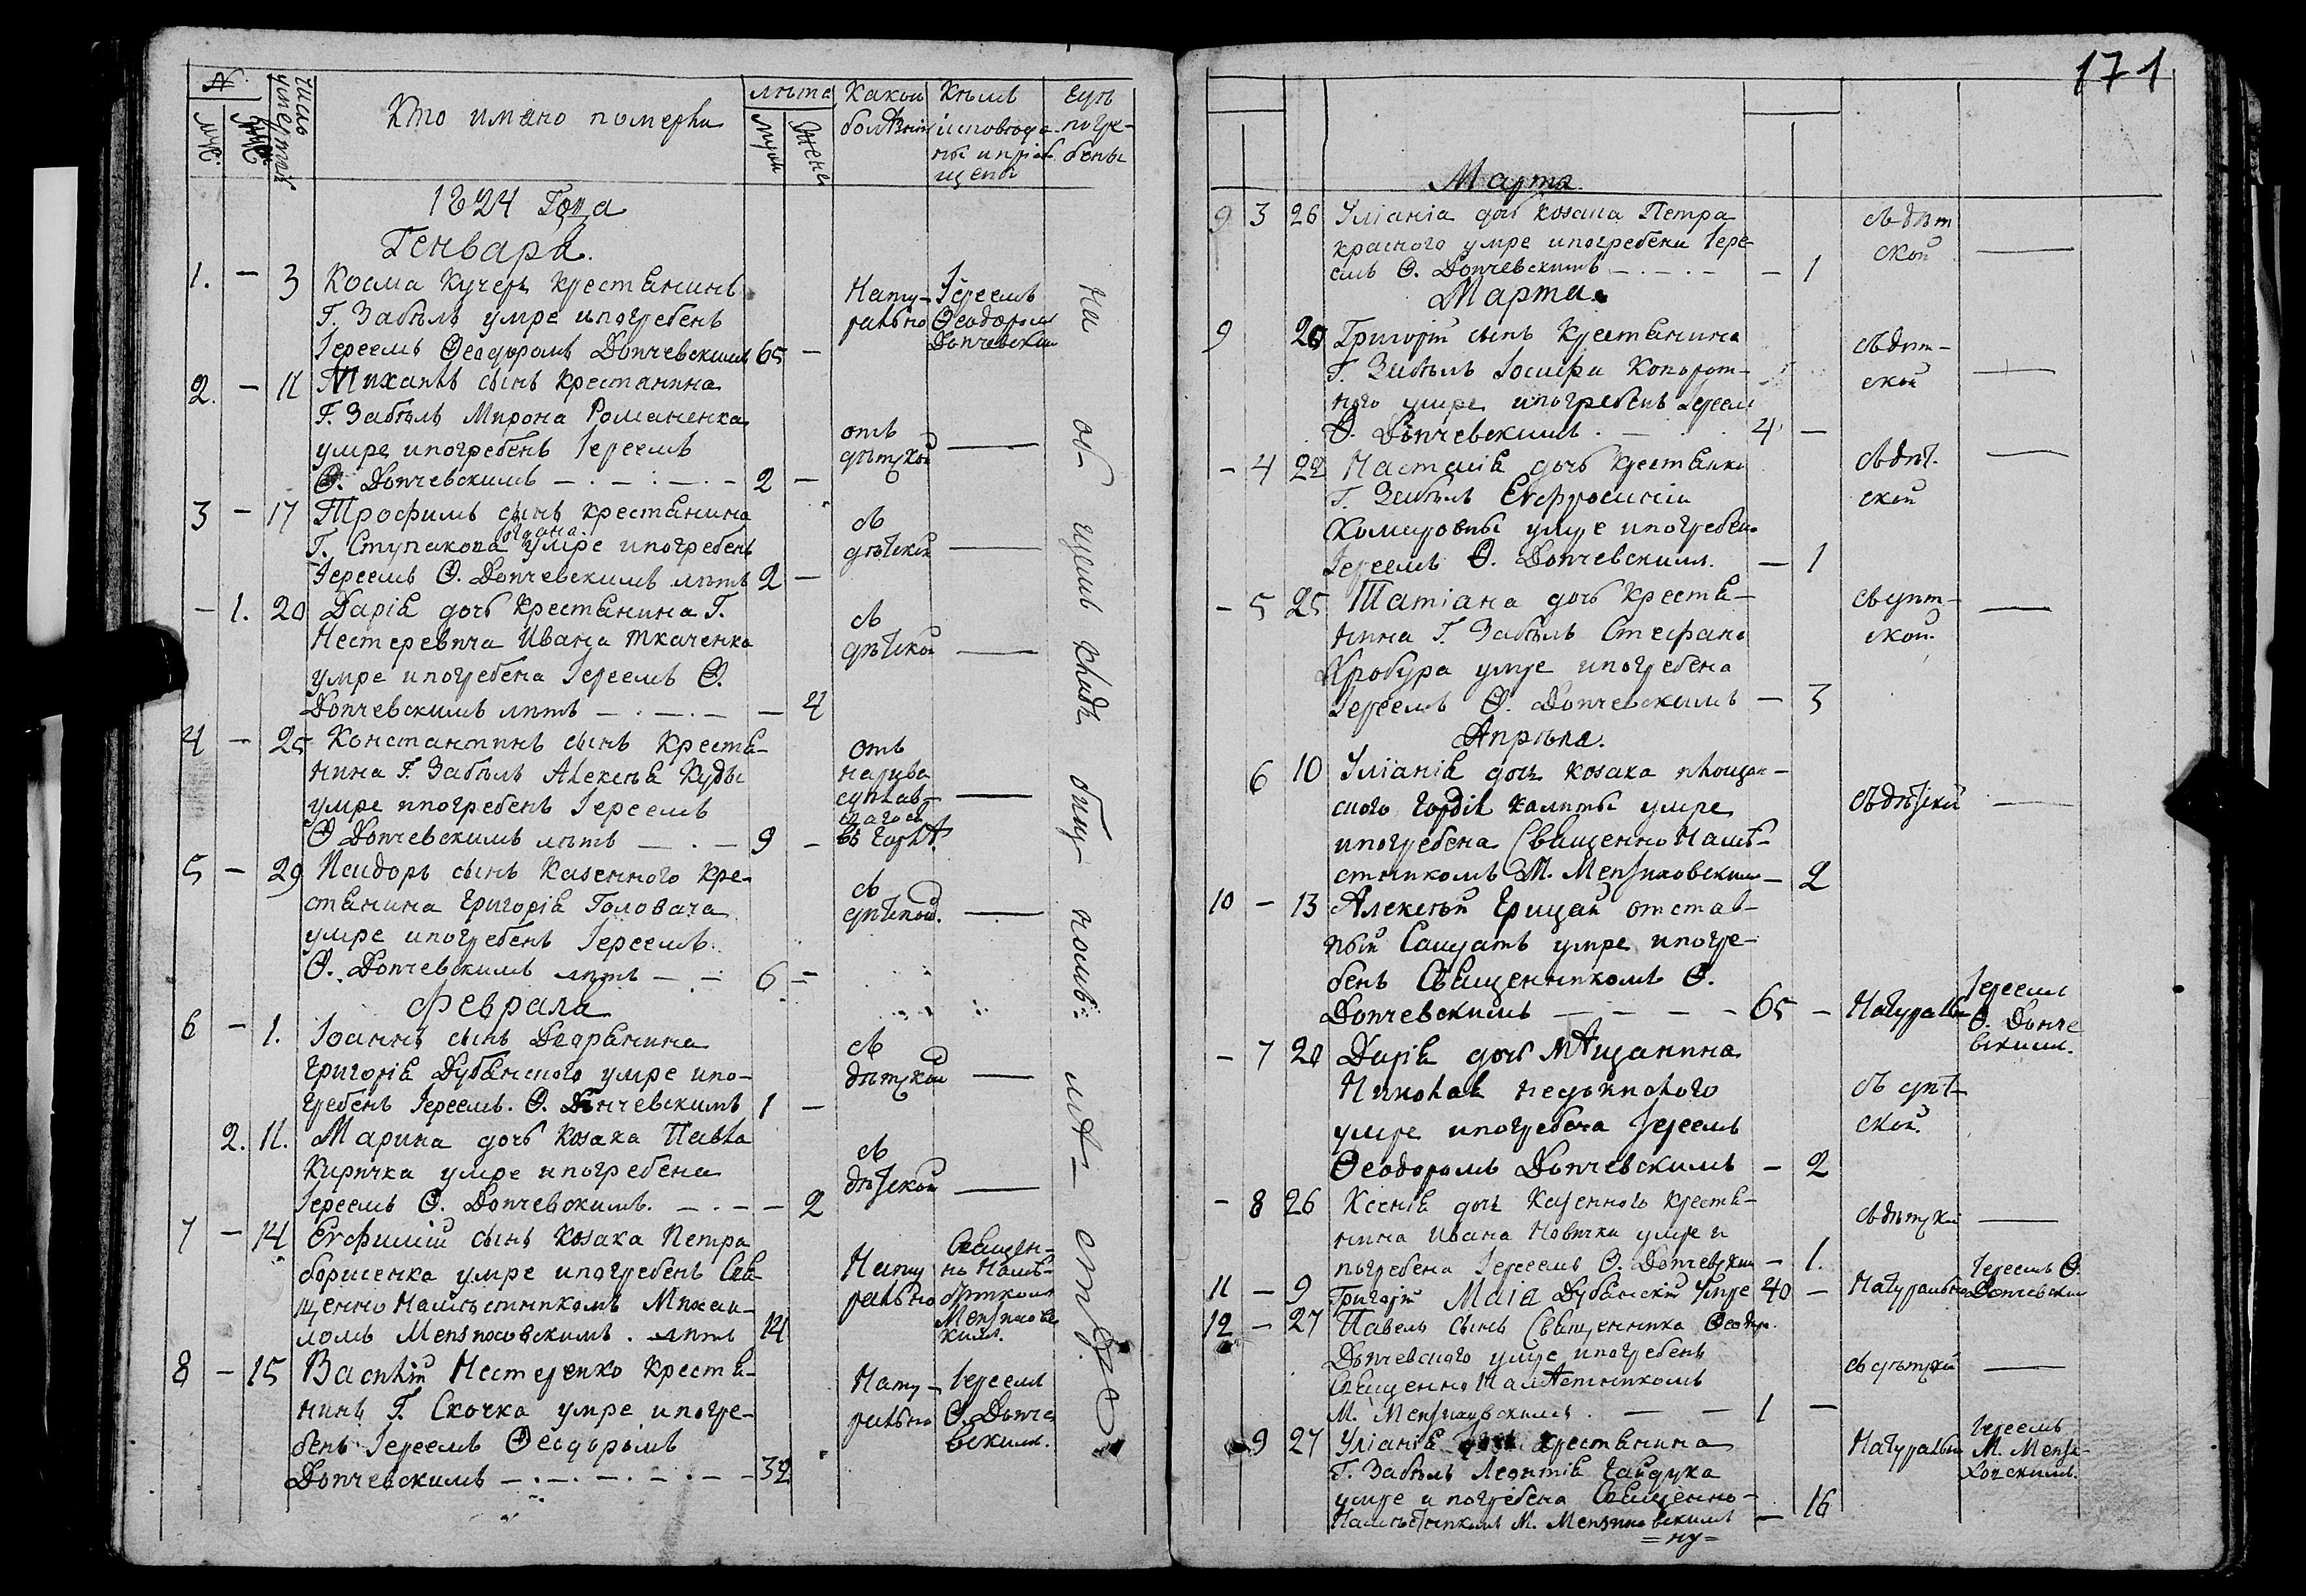 171
№ Число умершихъ Кто имяно померли лѣта Какою болѣзнію Кѣмъ исповѣда-ны и пріоб-щены Гдѣ погре-бены
муж. жен. мужи жены
1824 Года
Генваря.
1. – 3 Косма Кучеръ крестянинъ
Г. Забѣлъ умре и погребенъ
Іереемъ Ѳеодоромъ Допчевскимъ 65 –
Нату-рально
Іереемъ Ѳеодоромъ Допчевским
2. – 11 Михаилъ сынъ крестянина
Г. Забѣлъ Мирона Романенка
умре и погребенъ Іереемъ
Ѳ. Допчевскимъ – . – . – . – 2 –
отъ дѣтской
3 – 17 Трофимъ сынъ крестянина
Г. Ступакова умре и погребенъ
Іереемъ Ѳ. Допчевскимъ лѣтъ 2 –
съ дѣтской
– 1. 20 Дарія дочь крестянина Г.
Нестеревича Ивана Ткаченка
умре и погребена Іереемъ Ѳ.
Допчевскимъ лѣтъ – . – . – – 4
съ дѣтской
4 – 25 Константинъ сынъ крестя-
нина Г. Забѣлъ Алексѣя Куды
умре и погребенъ Іереемъ
Ѳ Допчевскимъ лѣтъ – . – 9 –
отъ
въ горлѣ
5 – 29 Исидоръ сынъ казенного кре-
стянина Григорія Головача
умре и погребенъ Іереемъ
Ѳ. Допчевскимъ лѣтъ – – 6 –
съ дѣтской.
Февраля
6 – 1. Іоаннъ сынъ Дворянина
Григорія Дубянского умре и по-
гребенъ Іереемъ. Ѳ. Допчевскимъ 1 –
съ дѣтской
2. 11. Марина дочь козака Павла
Киричка умре и погребена
Іереемъ Ѳ. Допчевскимъ. – . – – 2
съ дѣтской
7 – 14 Евфимій сынъ козака Петра
борисенка умре и погребенъ Свя-
щенно Намѣстникомъ Михаи-
ломъ Мензиховскимъ. лѣтъ 14
Нату рально
Священ-но Намѣ-стником Мензиховс кимъ.
8 – 15 Василій Нестеренко крестя-
нинъ Г. Скочка умре и погре-
бенъ Іереемъ Ѳеодоромъ
Допчевскимъ – . – . – . – . – – 32
Нату-рально
Іереемъ Ѳ. Допче вскимъ.
На об- щемъ кладъ бищ помъ: мѣ- стѣ
Марта.
9 3 26 Уліанія дочь козака Петра
красного умре и погребена Іере-
емъ Ѳ. Допчевскимъ – . – . – – 1
съ дѣт ской
Марта.
9 20 Григорій сынъ крестянина
Г. Забѣлъ Іосифа
умре и погребенъ Іереем
Ѳ. Допчевскимъ . – . 4 –
съ дѣт-ской
– 4 22 Настасія дочь крестянки
Г. Забѣлъ Евфросиніи
умре и погребен
Іереемъ Ѳ. Допчевскимъ. – 1
съ дѣт. ской
– 5 25 Татіана дочь крестя-
нина Г. Забѣлъ Стефана
умре и погребена
Іереемъ Ѳ. Допчевскимъ – 3
съ дѣт-ской.
Апрѣля.
6 10 Уліанія дочь козака
Гордія калиты умре
и погребена Священно Намѣ-
стникомъ М. Мензиховским – 2
съ дѣтской
10 – 13 Алексѣй Грицай отстав-
ный Салдатъ умре и погре-
бенъ Священникомъ Ѳ.
Допчевскимъ – – – – 65 – Натурально
Іереем Ѳ. Допче вскимъ.
– 7 20 Дарія дочь мѣщанина
Николая
умре и погребена Іереемъ
Ѳеодоромъ Допчевскимъ – 2
съ дѣт-ской.
– 8 26 Ксенія дочь казенного крестя-
нина Ивана Новички умре и
погребена Іереемъ Ѳ. Допчевским – 1.
съ дѣтской
11 – 9 Григорій Маія Дубянскій умре 40 – Натурально
Іереемъ Ѳ. Допчевским
12 – 27 Павелъ сынъ Священника Ѳеодор.
Допчевского умре и погребенъ
Священно Намѣстникомъ
М. Мензиховскимъ. – – 1 –
съ дѣтской
9 27 Уліанія дочь крестянина
Г. Забѣлъ Леонтія Гайдука
умре и погребена Священно-
Намѣстникомъ М. Мензиховскимъ – 16
Натурально
Іереемъ М. Мензи-ховскимъ.
=ну=